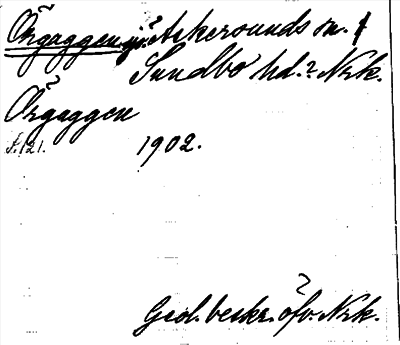 Örgaggen, sjö. Askersunds sn. &
Sundbo hd. Nrk.
Örgaggen
S. 121. 1902.
Geol. beskr. öfv. Nrk.